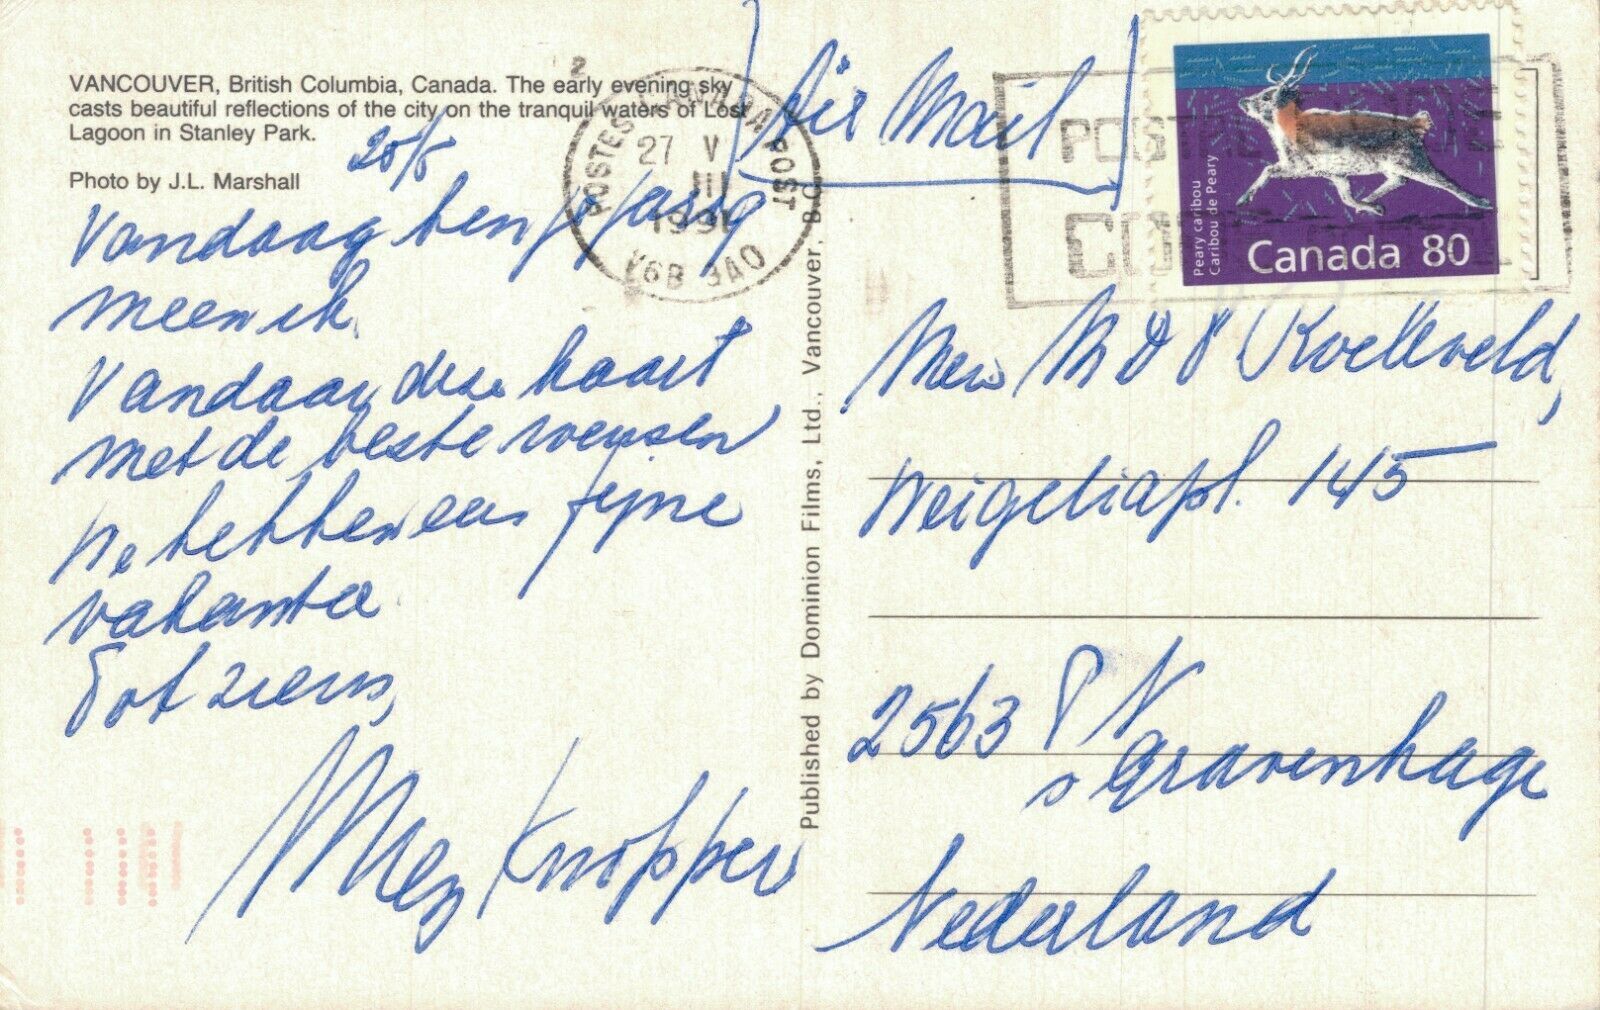 VANCOUVER, British Columbia, Canada. The early evening sky
casts beautiful reflections of the city on the tranquil waters of Lost
Lagoon in Stanley Park.
25/5
Photo by J.L. Marshall
Vandaag ben je jarig
meen ik.
Vandaar deze kaart
met de beste wensen
We hebben een fijne
vakantie.
Tot ziens,
Knopper
Published by Dominion Films, Ltd., Vancouver, B.C.
Air Mail
POSTES CANADA POST
27 V
1991
V6B 3A0
POSTAL CODE
Peary caribou
Caribou de Peary
Canada 80
Mew M D P Koelleveld,
Weigeliapl. 145
2563 P N
's Gravenhage
Nederland